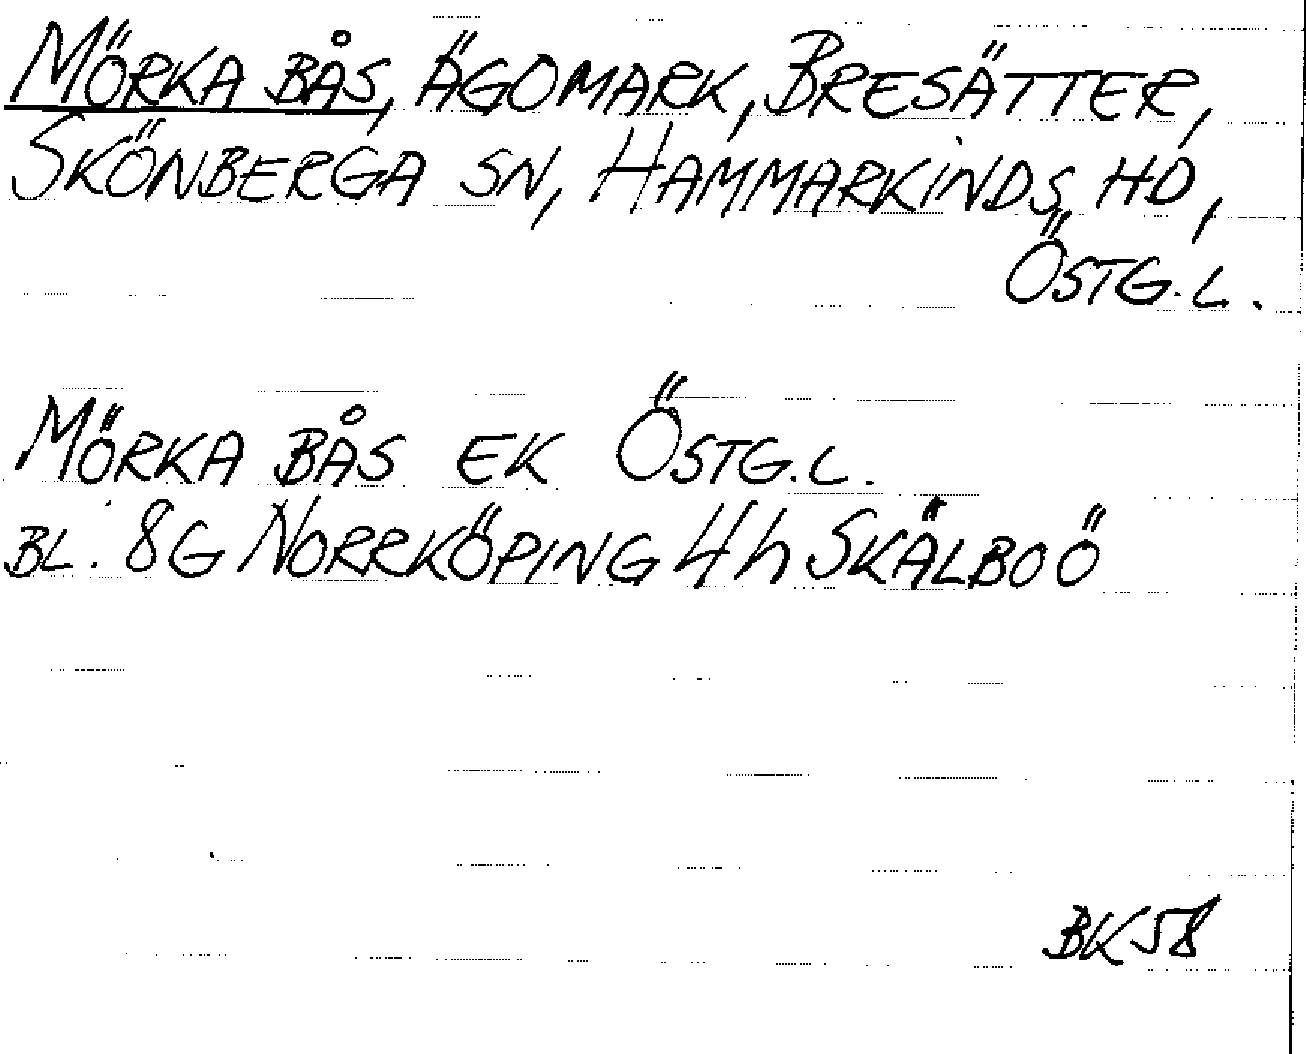 MÖRKA BÅS, ÄGOMARK, BRESÄTTER,
SKÖNBERGA SN, HAMMARKINDS HD,
ÖSTG.L.
MÖRKA BÅS EK ÖSTG.L.
BL. 8G NORRKÖPING 4h SKÄLBOÖ
BK58